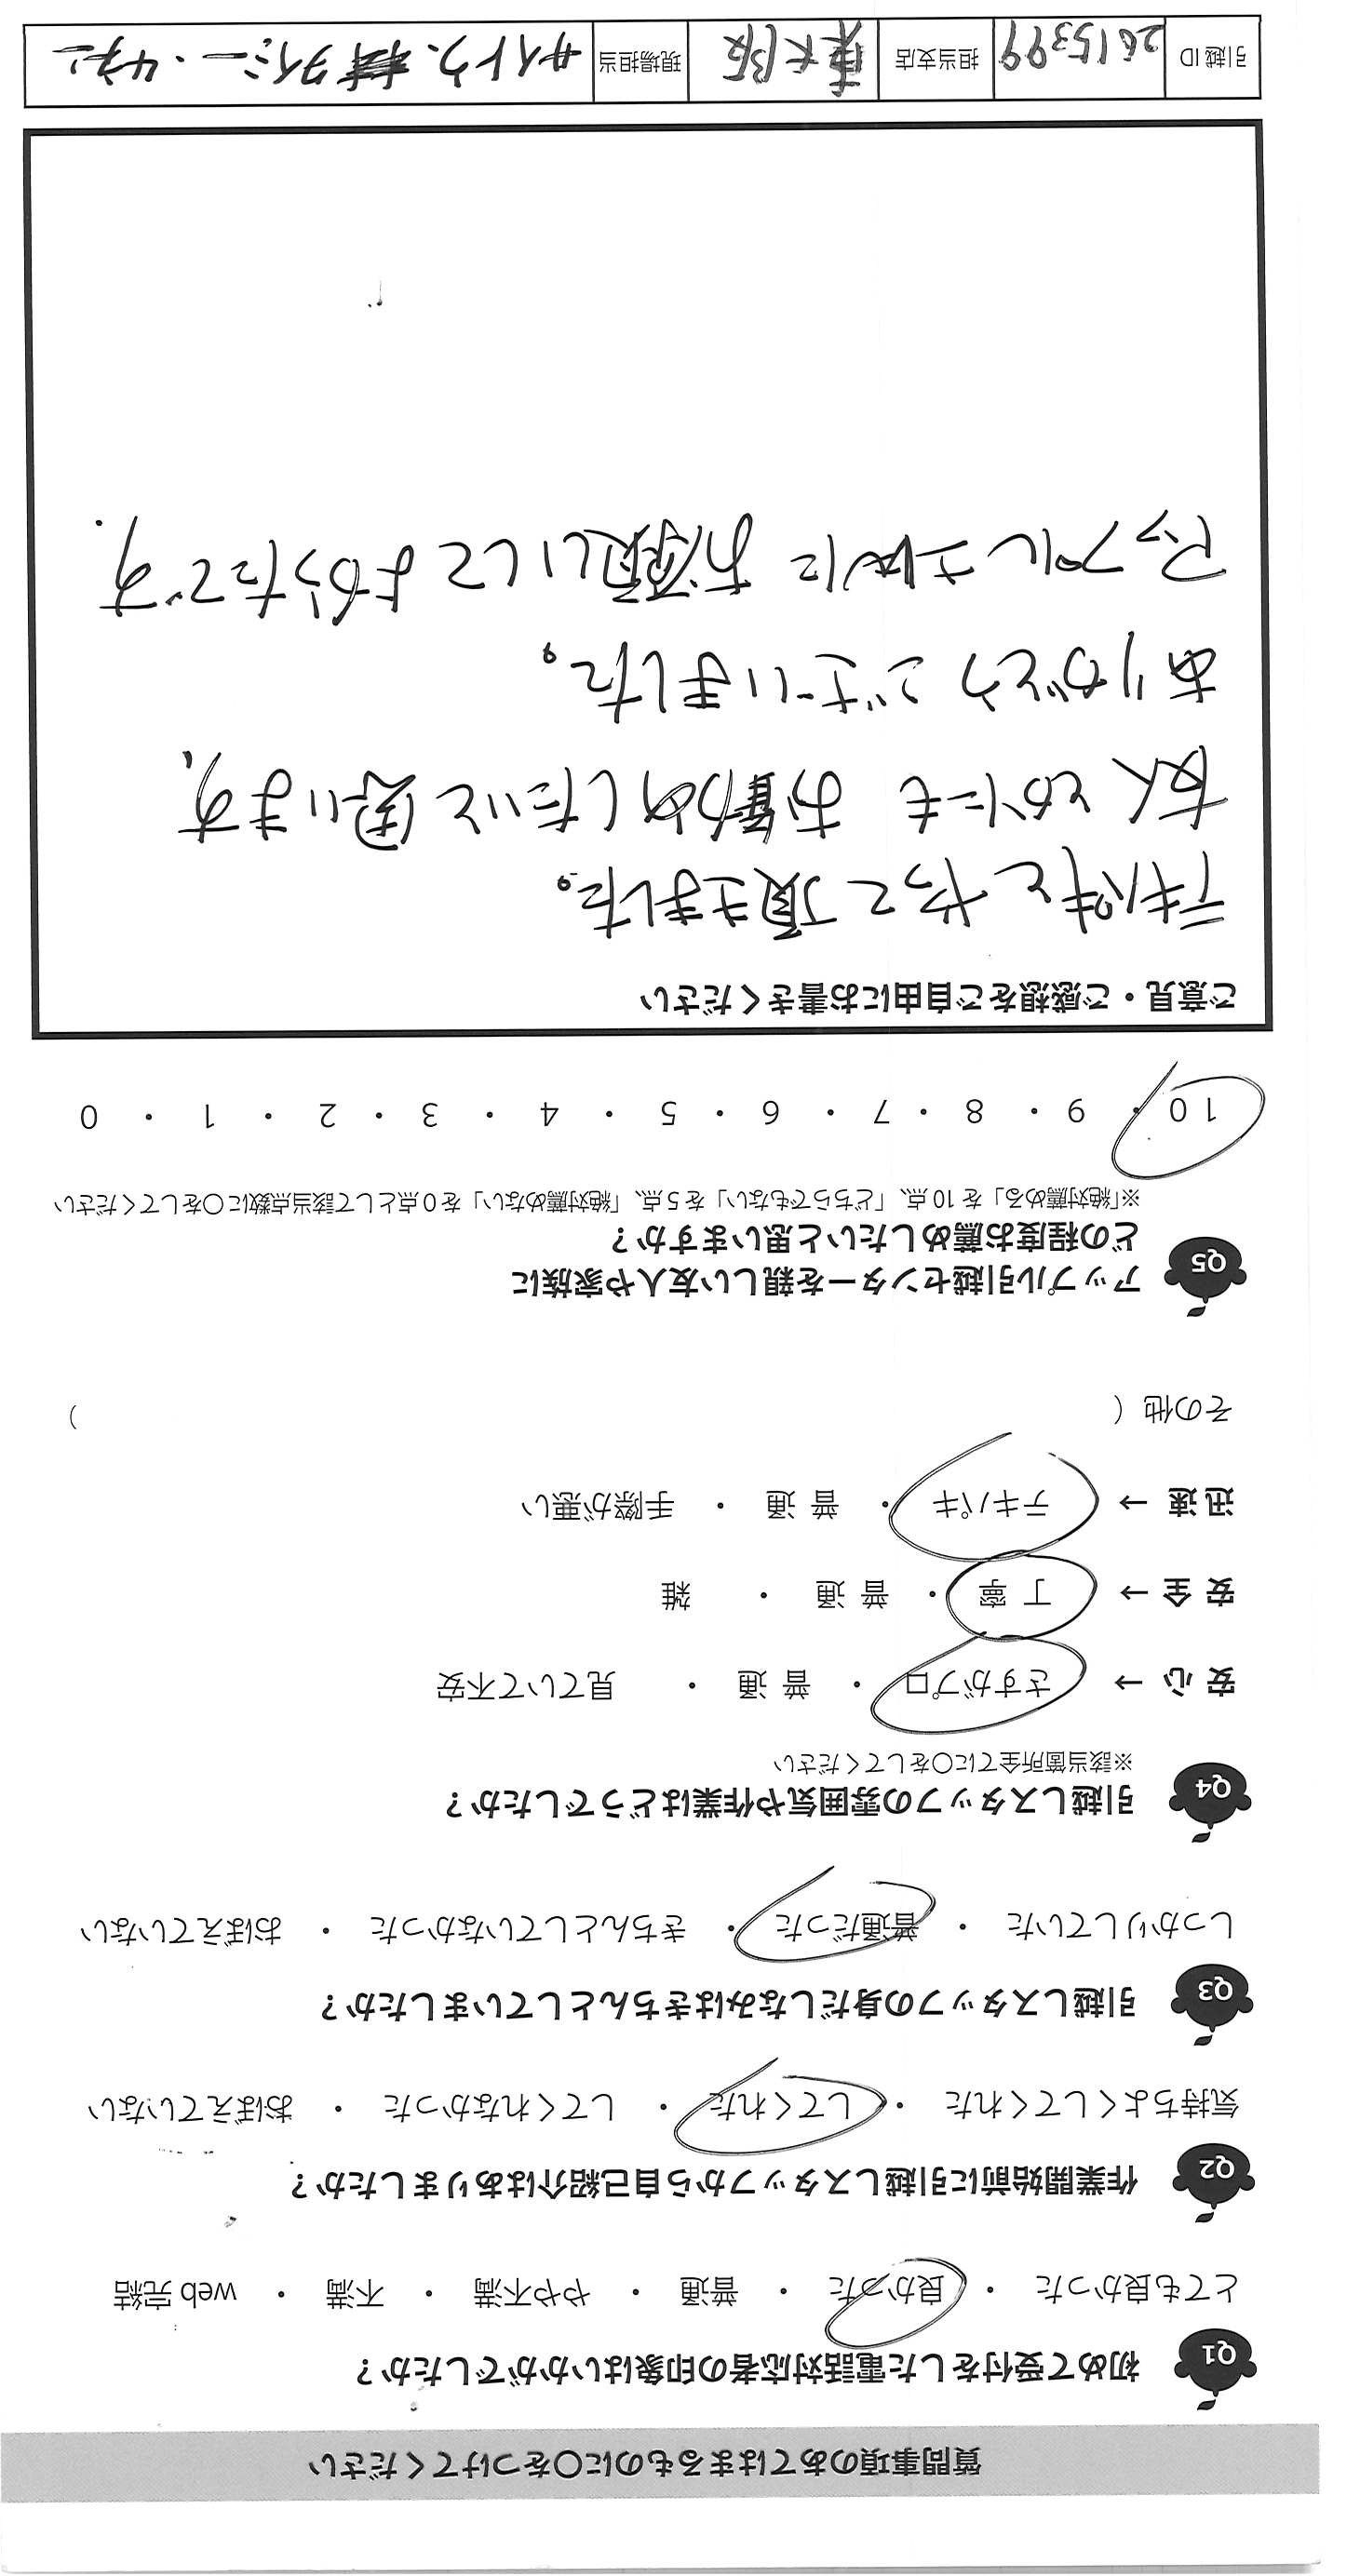 質問事項のあてはまるものに○をつけてください
Q1 初めて受付をした電話対応者の印象はいかがでしたか?
とても良かった ・ 良かった ・ 普通 ・ やや不満 ・ 不満 ・ web 完結
Q2 作業開始前に引越しスタッフから自己紹介はありましたか?
気持ちよくしてくれた ・ してくれた ・ してくれなかった ・ おぼえていない
Q3 引越しスタッフの身だしなみはきちんとしていましたか?
しっかりしていた ・ 普通だった ・ きちんとしていなかった ・ おぼえていない
Q4 引越しスタッフの雰囲気や作業はどうでしたか?
※該当箇所全てに○をしてください
安 心 → さすがプロ ・ 普 通 ・ 見ていて不安
安 全 → 丁 寧 ・ 普 通 ・ 雑
迅 速 → テキパキ ・ 普 通 ・ 手際が悪い
その他 ( )
Q5 アップル引越センターを親しい友人や家族に
どの程度お薦めしたいと思いますか?
※「絶対薦める」を 10 点、「どちらでもない」を 5 点、「絶対薦めない」を 0 点として該当点数に○をしてください
10 ・ 9 ・ 8 ・ 7 ・ 6 ・ 5 ・ 4 ・ 3 ・ 2 ・ 1 ・ 0
ご意見・ご感想をご自由にお書きください
テキパキとやって頂きました。
友人とかにも お薦めしたいと思います、
ありがとうございました。
アップルさんに お願いして よかったです.
引越 ID 2615399 担当支店 東大阪 現場担当 サイトウ. タイミー・